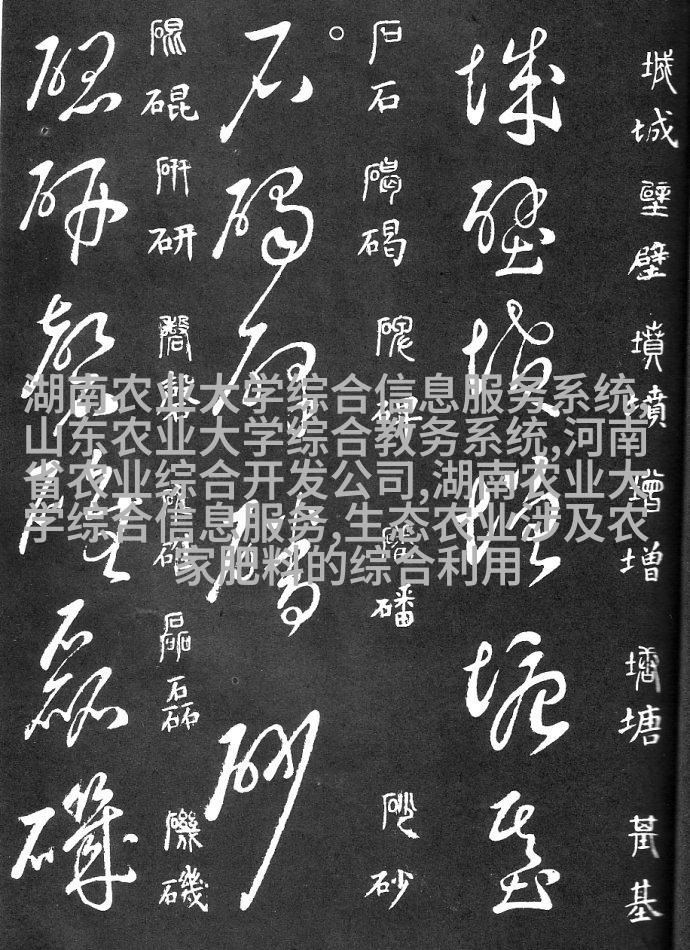 城城 壁壁 墳墳 增增 塘塘 基基
城壁墳增塘基
石石 碣碣 碑碑 磻磻 砂砂
石碣碑磻砂
碨碨 研研 磬磬 磊磊 磯磯
研磬磊磯
湖南农业大学综合信息服务系统,
山东农业大学综合教务系统,河南
省农业综合开发公司,湖南农业大
学综合信息服务,生态农业涉及农
家肥料的综合利用